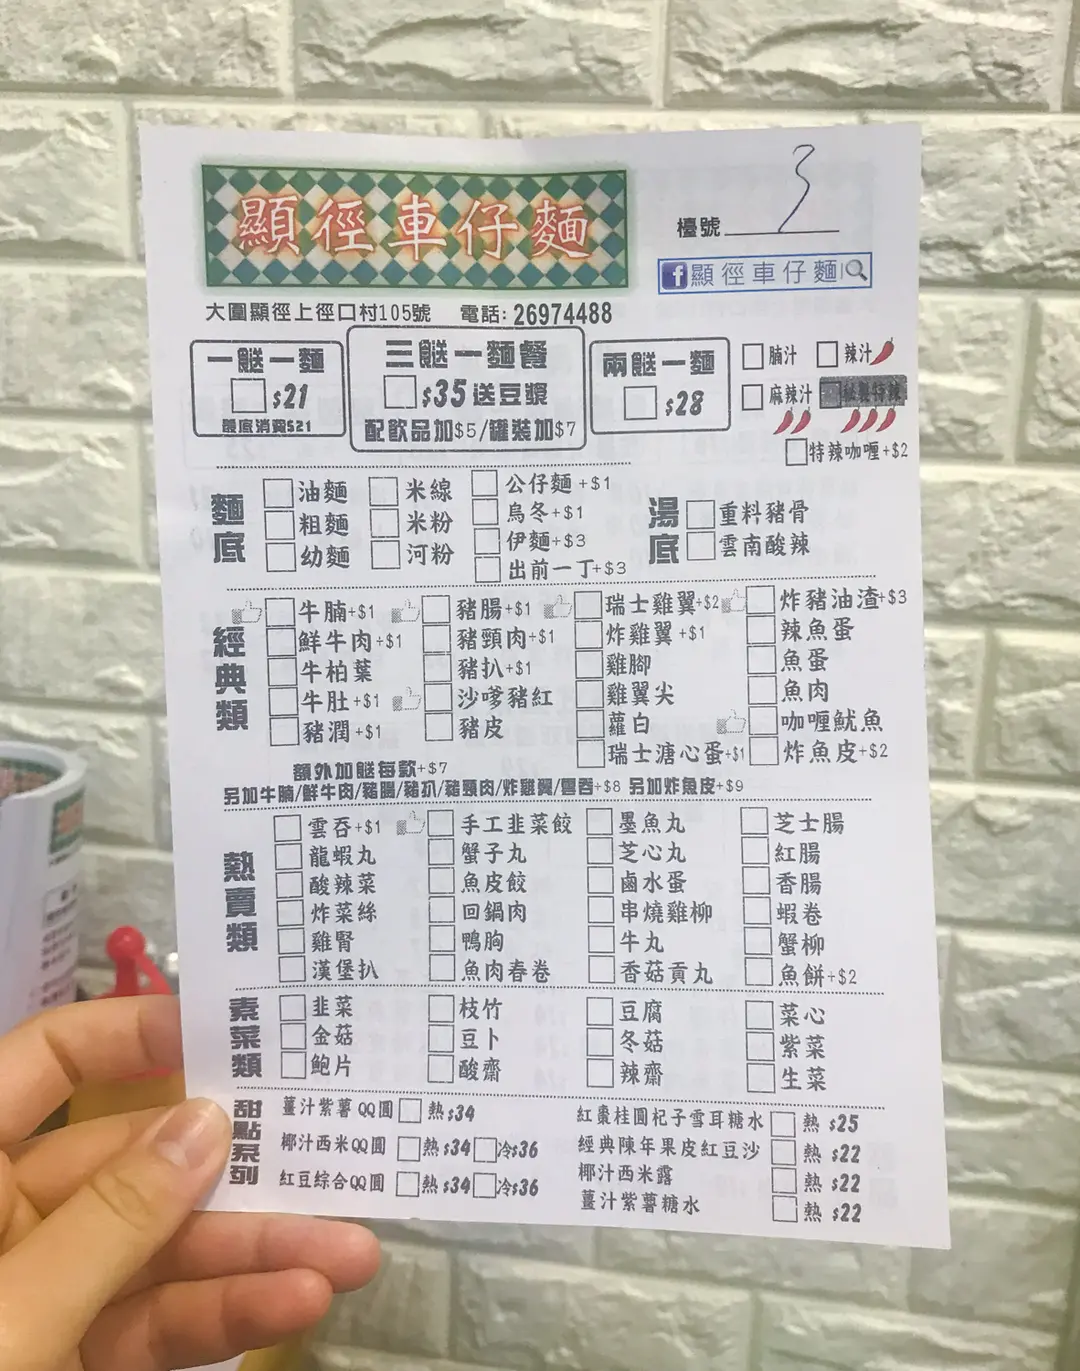 顯徑車仔麵
檯號 3
f 顯徑車仔麵
大圍顯徑上徑口村105號 電話: 26974488
一餸一麵
$21
最底消費$21
三餸一麵餐
$35送豆漿
配飲品加$5/罐裝加$7
兩餸一麵
$28
腩汁 辣汁
麻辣汁 秘製特辣
特辣咖喱+$2
麵底
油麵 米線 公仔麵+$1
粗麵 米粉 烏冬+$1
幼麵 河粉 伊麵+$3
出前一丁+$3
湯底
重料豬骨
雲南酸辣
經典類
牛腩+$1 豬腸+$1 瑞士雞翼+$2 炸豬油渣+$3
鮮牛肉+$1 豬頸肉+$1 炸雞翼+$1 辣魚蛋
牛柏葉 豬扒+$1 雞腳 魚蛋
牛肚+$1 沙嗲豬紅 雞翼尖 魚肉
豬潤+$1 豬皮 蘿白 咖喱魷魚
瑞士溏心蛋+$1 炸魚皮+$2
額外加餸每款+$7
另加牛腩/鮮牛肉/豬腸/豬扒/豬頸肉/炸雞翼/雲吞+$8 另加炸魚皮+$9
熱賣類
雲吞+$1 手工韭菜餃 墨魚丸 芝士腸
龍蝦丸 蟹子丸 芝心丸 紅腸
酸辣菜 魚皮餃 鹵水蛋 香腸
炸菜絲 回鍋肉 串燒雞柳 蝦卷
雞腎 鴨胸 牛丸 蟹柳
漢堡扒 魚肉春卷 香菇貢丸 魚餅+$2
素菜類
韭菜 枝竹 豆腐 菜心
金菇 豆卜 冬菇 紫菜
鮑片 酸齋 辣齋 生菜
甜點系列
薑汁紫薯QQ圓 熱$34
椰汁西米QQ圓 熱$34 冷$36
紅豆綜合QQ圓 熱$34 冷$36
紅棗桂圓杞子雪耳糖水 熱$25
經典陳年果皮紅豆沙 熱$22
椰汁西米露 熱$22
薑汁紫薯糖水 熱$22